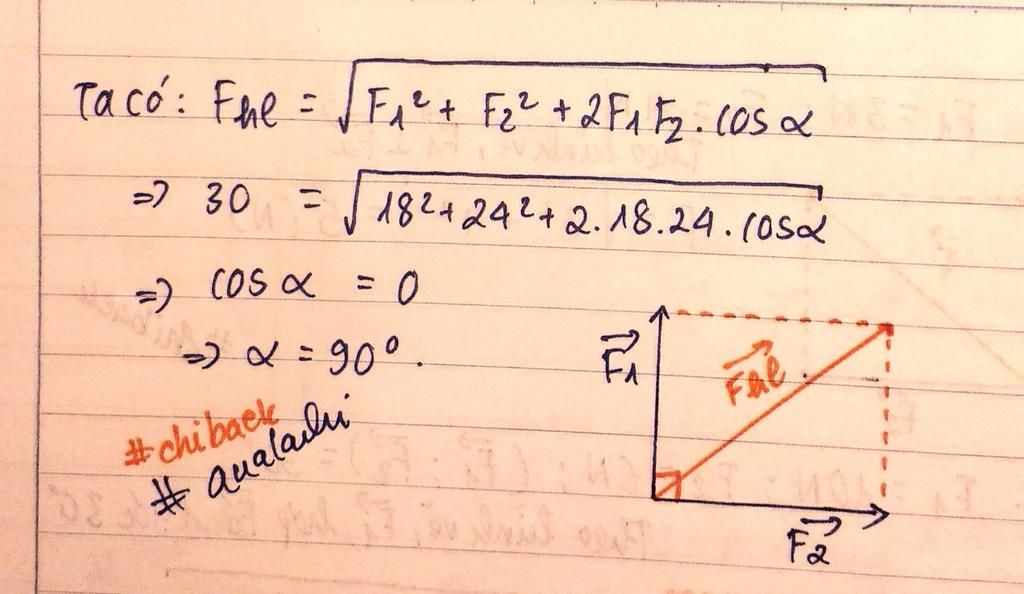 Ta có: Fhl = √F₁² + F₂² + 2F₁F₂ . cos α
=> 30 = √18² + 24² + 2.18.24. cosα
=> cos α = 0
=> α = 90⁰.
#chiback
F₁
Fhl
F₂